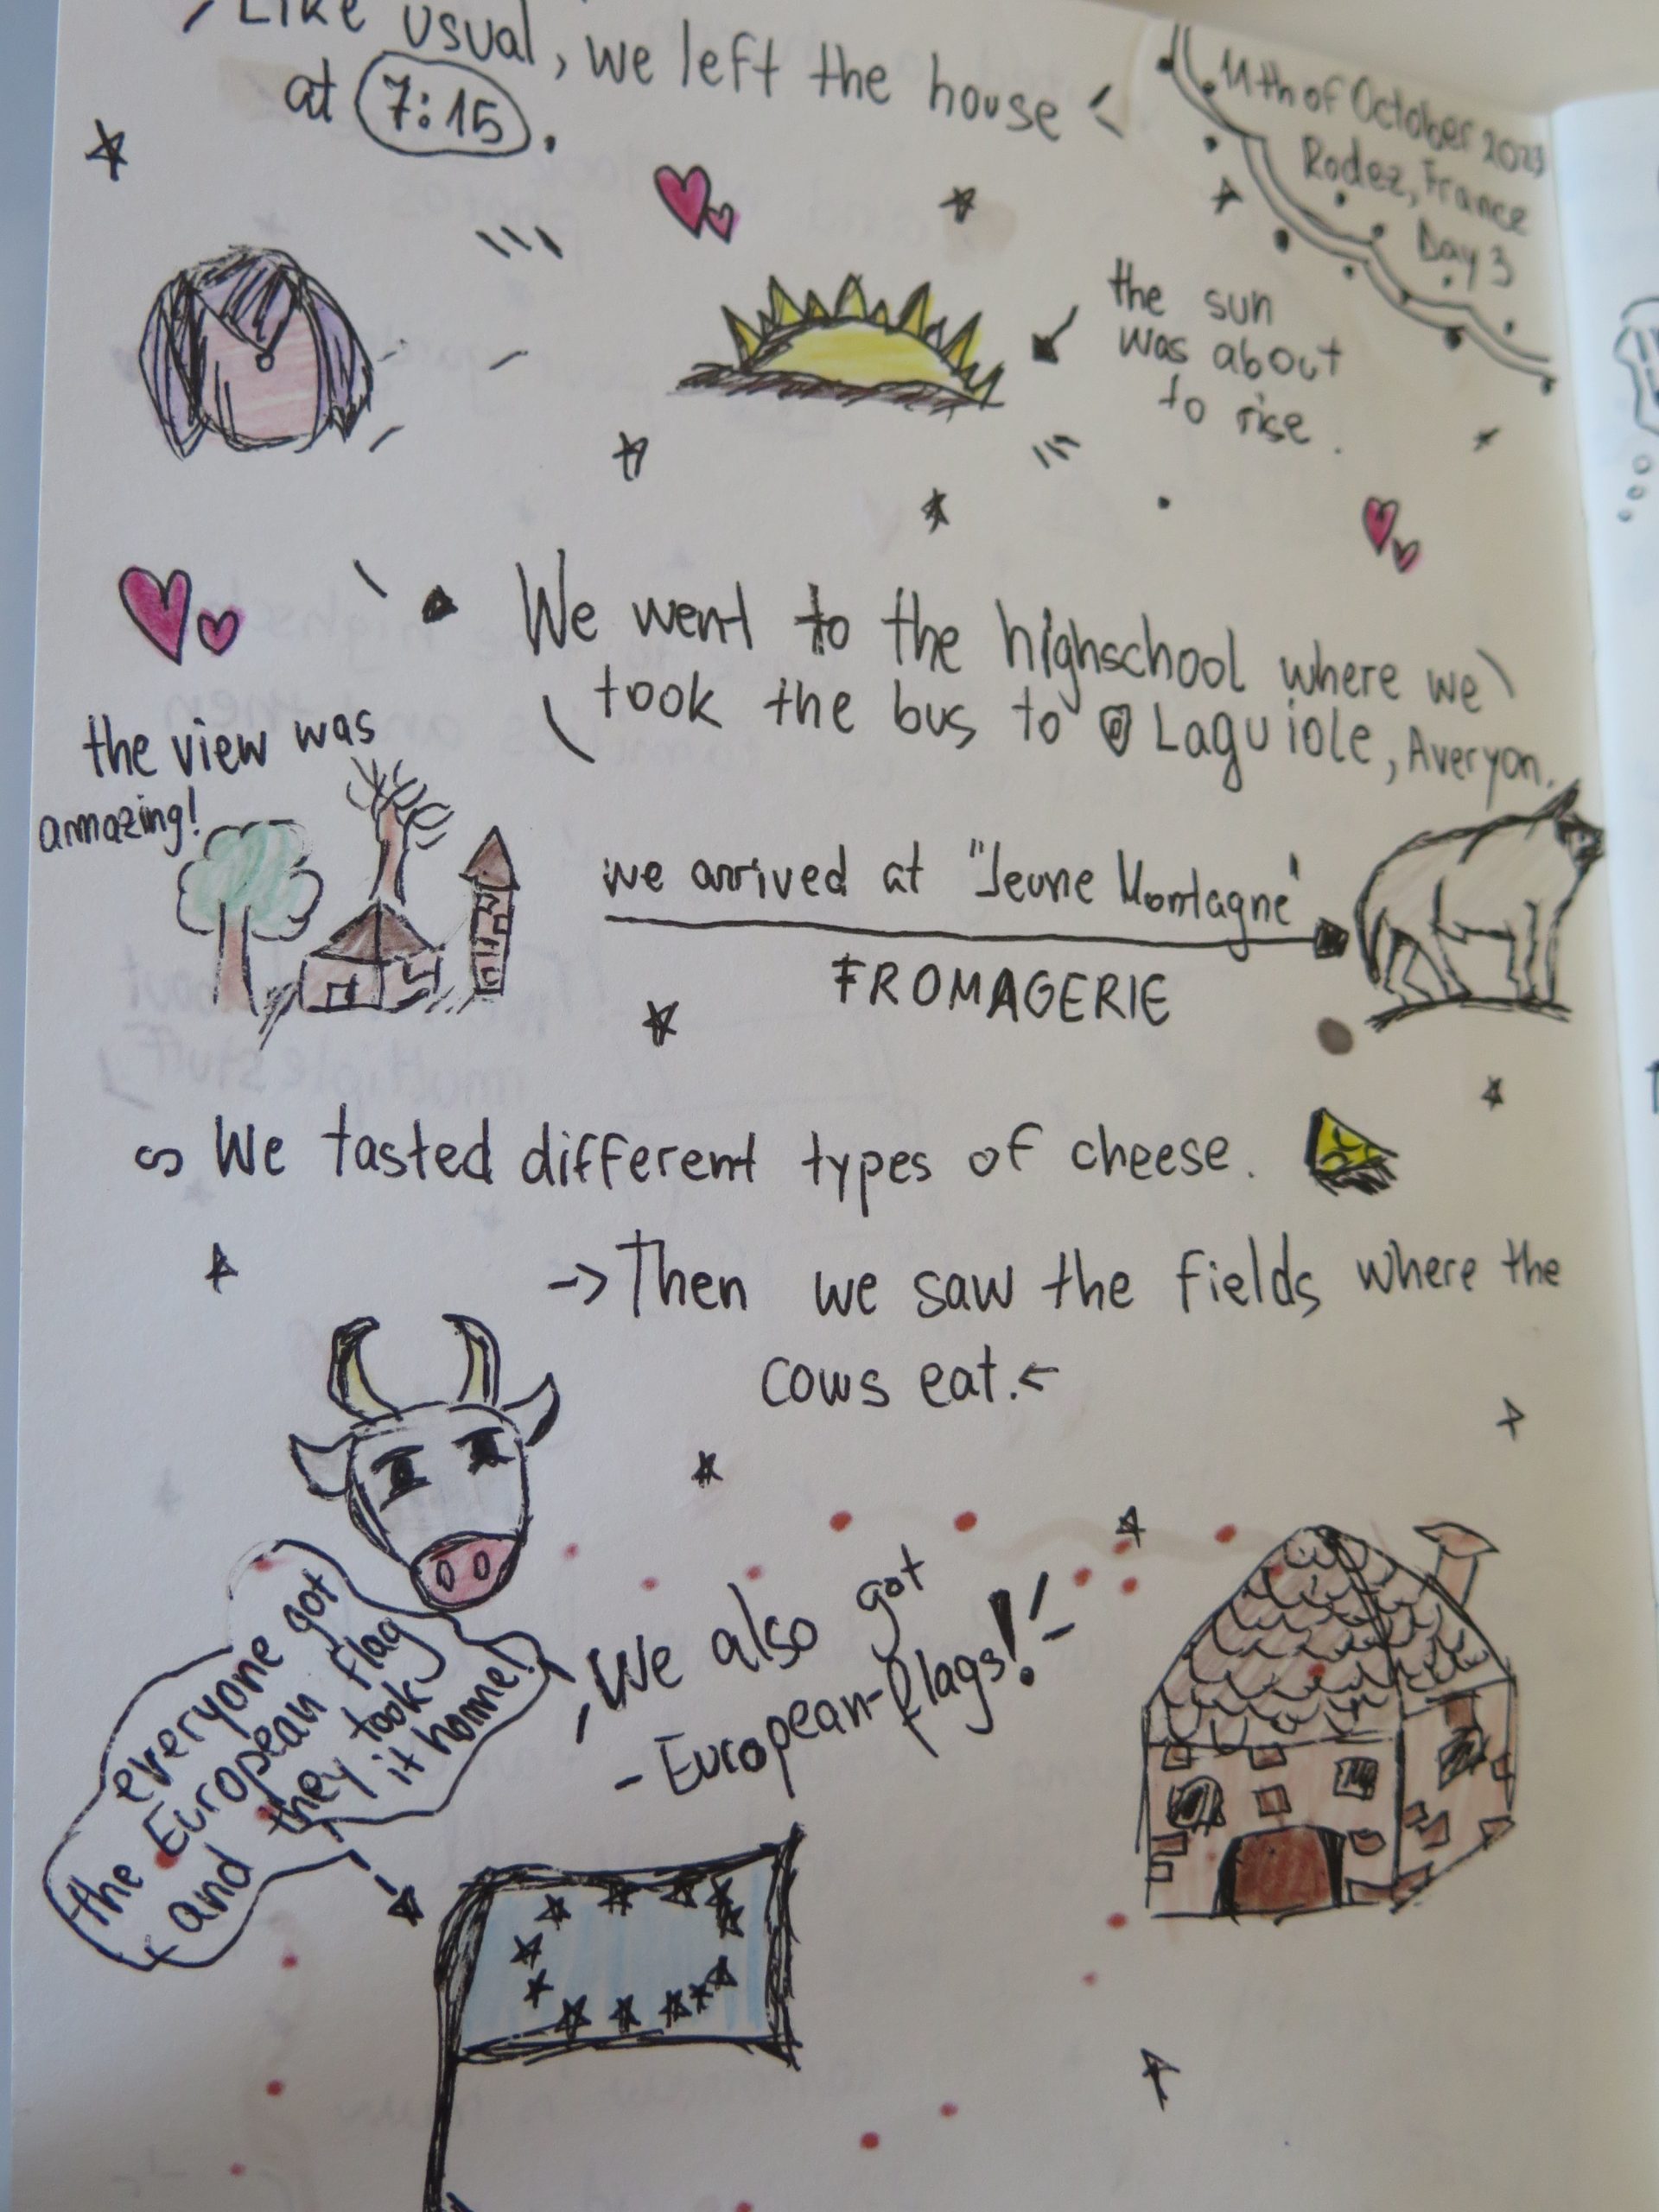 Like usual, we left the house
at 7:15.
11th of October 2023
Rodez, France
Day 3
the sun
was about
to rise.
We went to the highschool where we
took the bus to Laguiole, Averyon.
the view was
amazing!
we arrived at "Jeune Montagne"
FROMAGERIE
We tasted different types of cheese.
-> Then we saw the fields where the
cows eat. <-
We also got
- European-flags! -
everyone got
the European flag
and they took
it home!